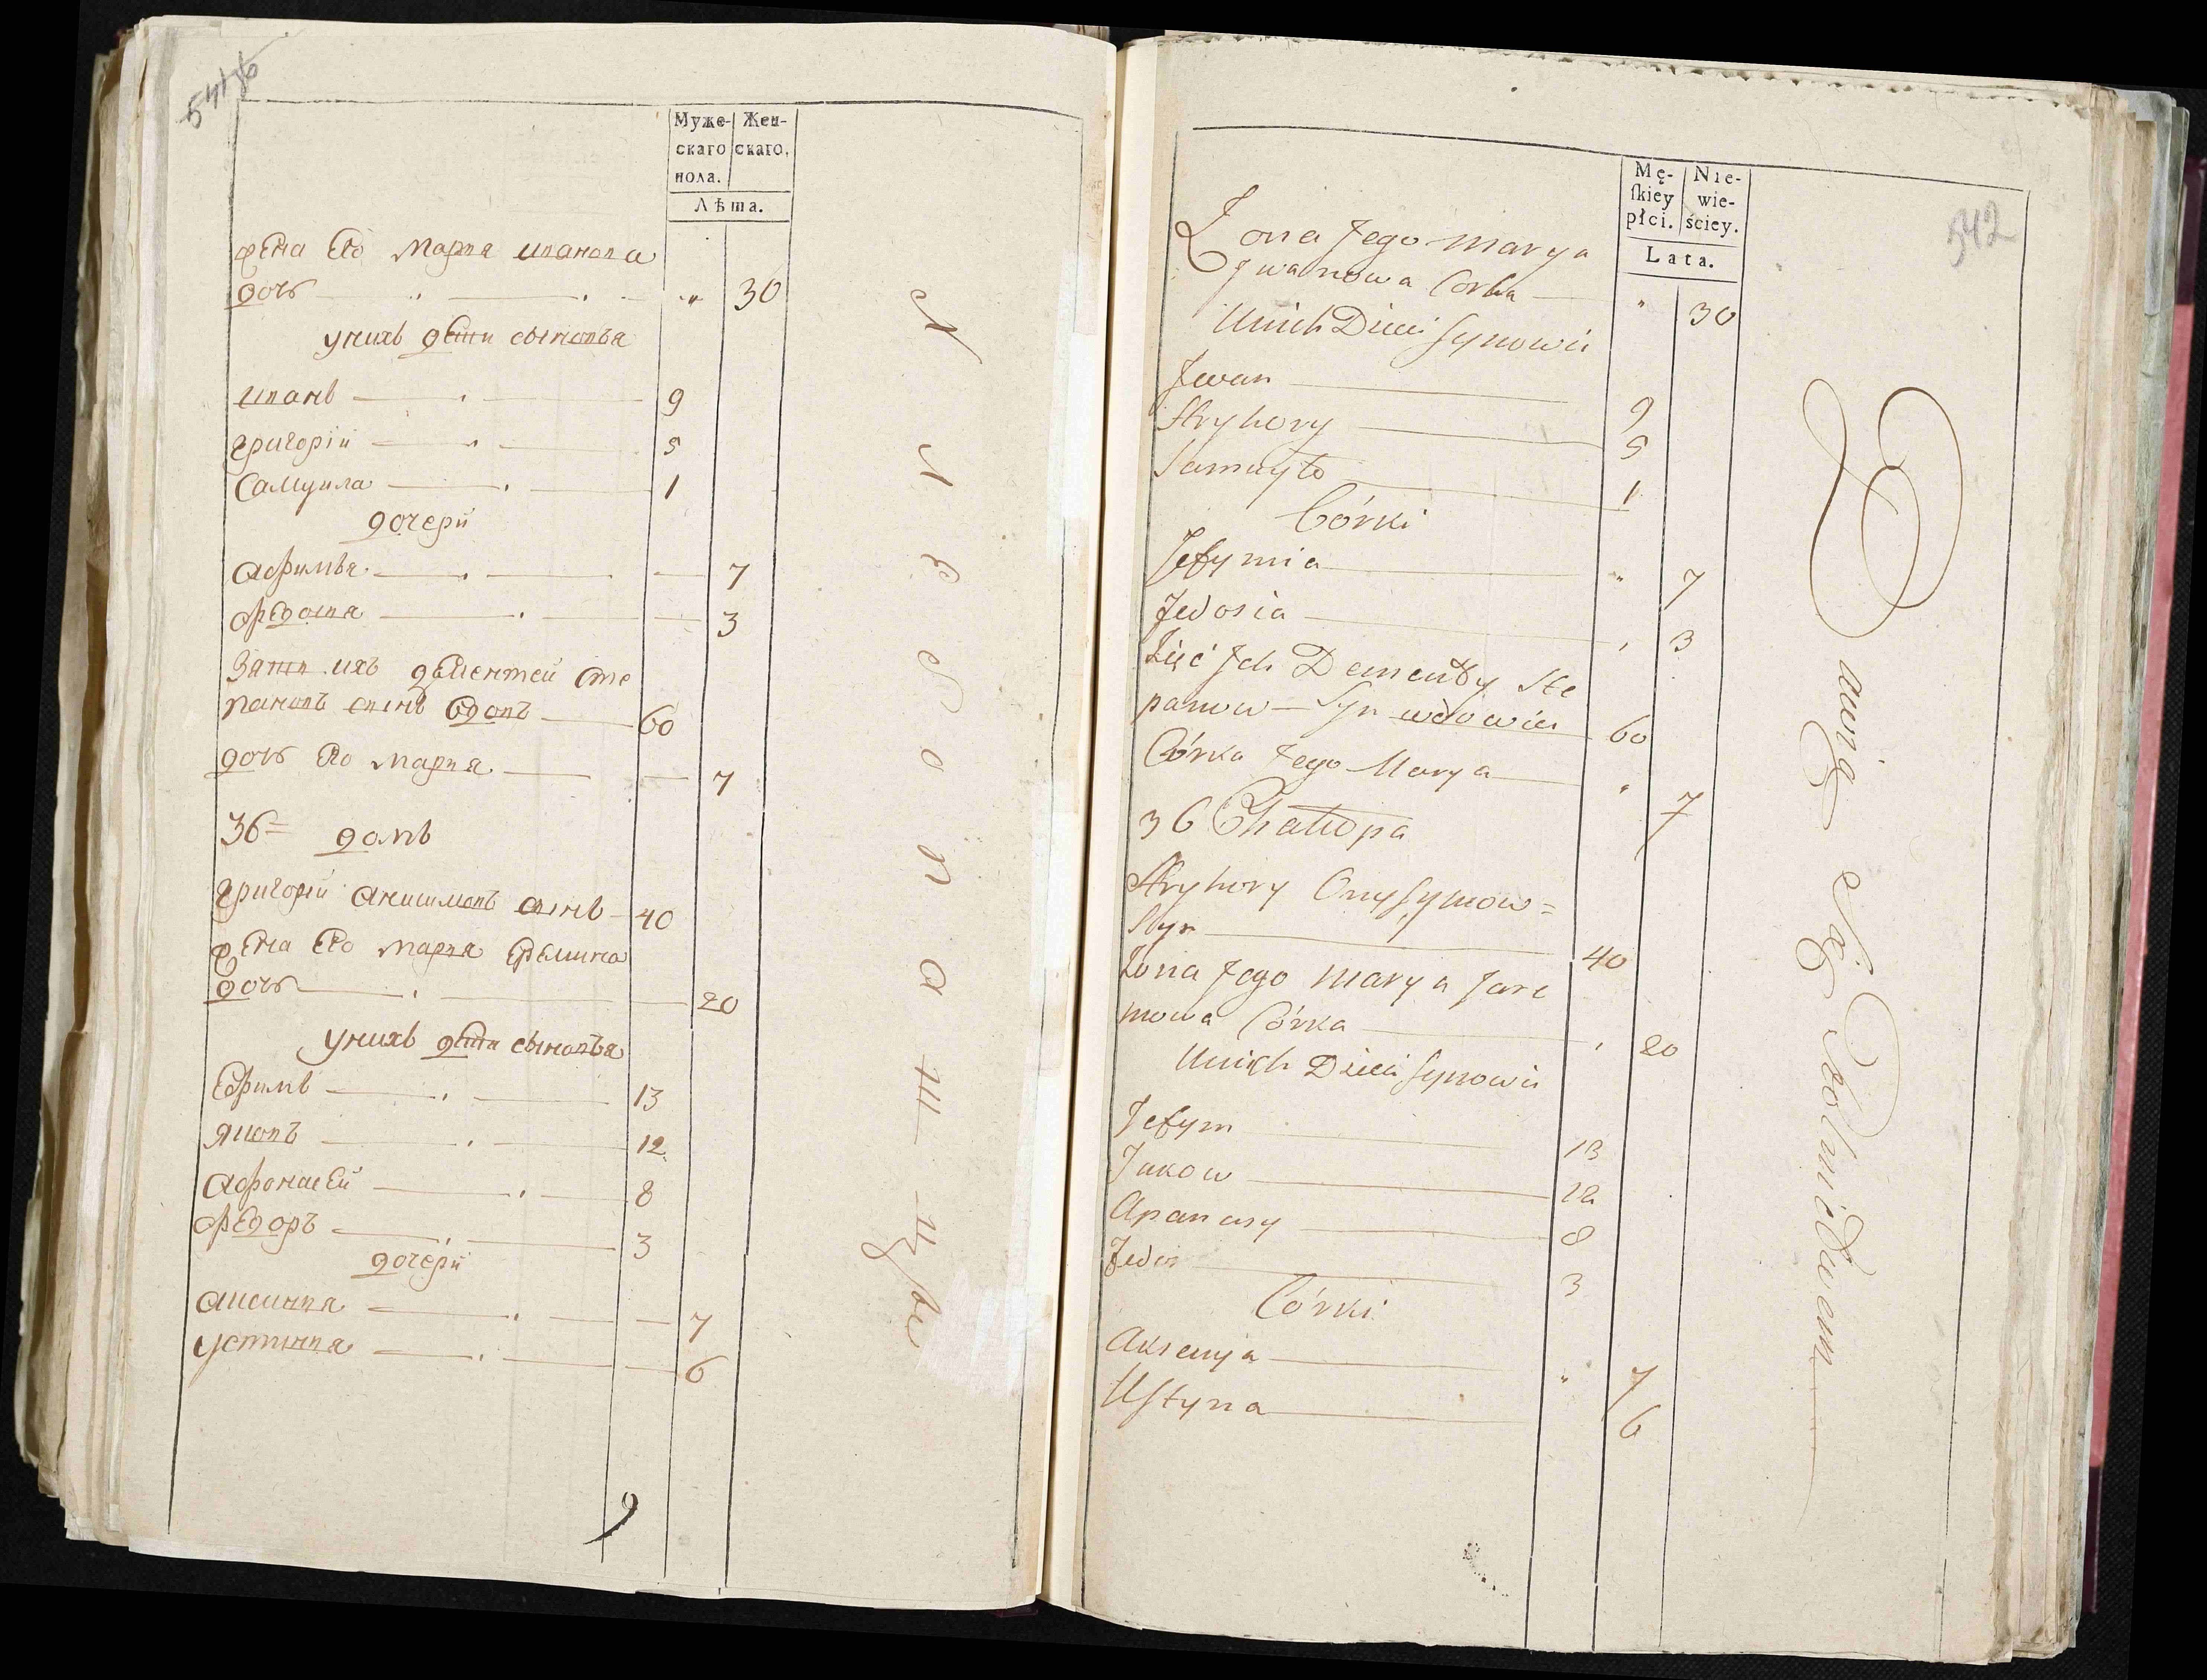 541об
Муже- Жен-
скаго скаго.
пола.
Лѣта.
жена Его марья иванова
дочь " 30
у нихъ дѣти сыновья
иванъ 9
григорій 5
Самуила 1
дочери
афимья 7
федосья 3
Зять ихъ дементей сте
пановъ сынъ вдовъ 60
дочь его марья 7
36 = домъ
григорій анисимовъ сынъ 40
жена Его марья Еремина
дочь 20
у нихъ дѣти сыновья
Ефимъ 13
яковъ 12
афонасей 8
федоръ 3
дочери
аксинья 7
устинья 6
9
542
Mę- Nie-
skiey wie-
płci. ściey.
Lata.
Zona Jego marya
Jwanowa Corka " 30
Unich Dieci Synowie
Jwan 9
Hryhory 5
Samuyło 1
Córki
Jefymia " 7
Fedosia 3
Zięć Jch Dementy Ste
panow Syn wdowiec 60
Córka Jego Marya 7
36 Chałupa
Hryhory Onysymow =
Syn 40
Zona Jego marya Jare
mowa Córka 20
Unich Dieci Synowie
Jefym 13
Jakow 12
Apanasy 8
Fedor 3
Córki
Aksenja " 7
Ustyna 6